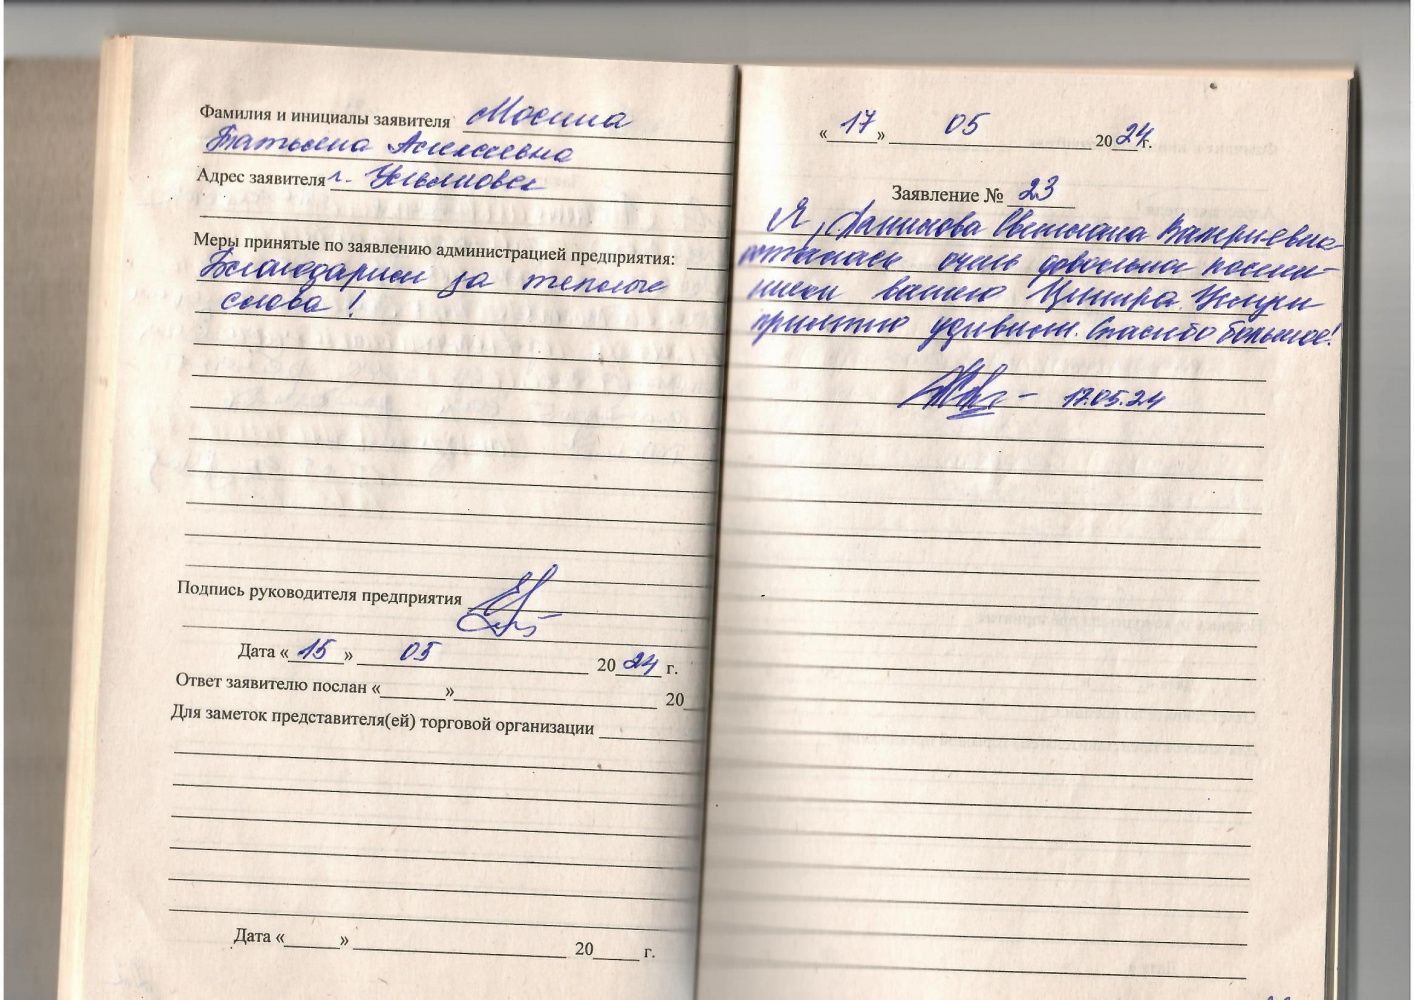 Фамилия и инициалы заявителя Мосина
Татьяна Алексеевна
Адрес заявителя г. Ульяновск
Меры принятые по заявлению администрацией предприятия:
Благодарим за теплые
слова!
Подпись руководителя предприятия
Дата «15» 05 2024 г.
Ответ заявителю послан «______» 20
Для заметок представителя(ей) торговой организации
Дата «______» 20_____ г.
«17» 05 2024г.
Заявление № 23
Я, Светлана Валериевна
осталась очень довольна посеще-
нием вашего Центра. Услуги
приятно удивили. Спасибо большое!
17.05.24